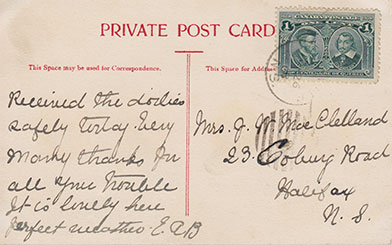 PRIVATE POST CARD
CANADA POSTAGE
This Space may be used for Correspondence.
This Space for Address
Received the doilies
safely today. Very
Many thanks for
all your trouble
It is lovely here
perfect weather. E.A.B
Mrs. J. W. MacClelland
23. Coburg Road
Halifax
N. S.